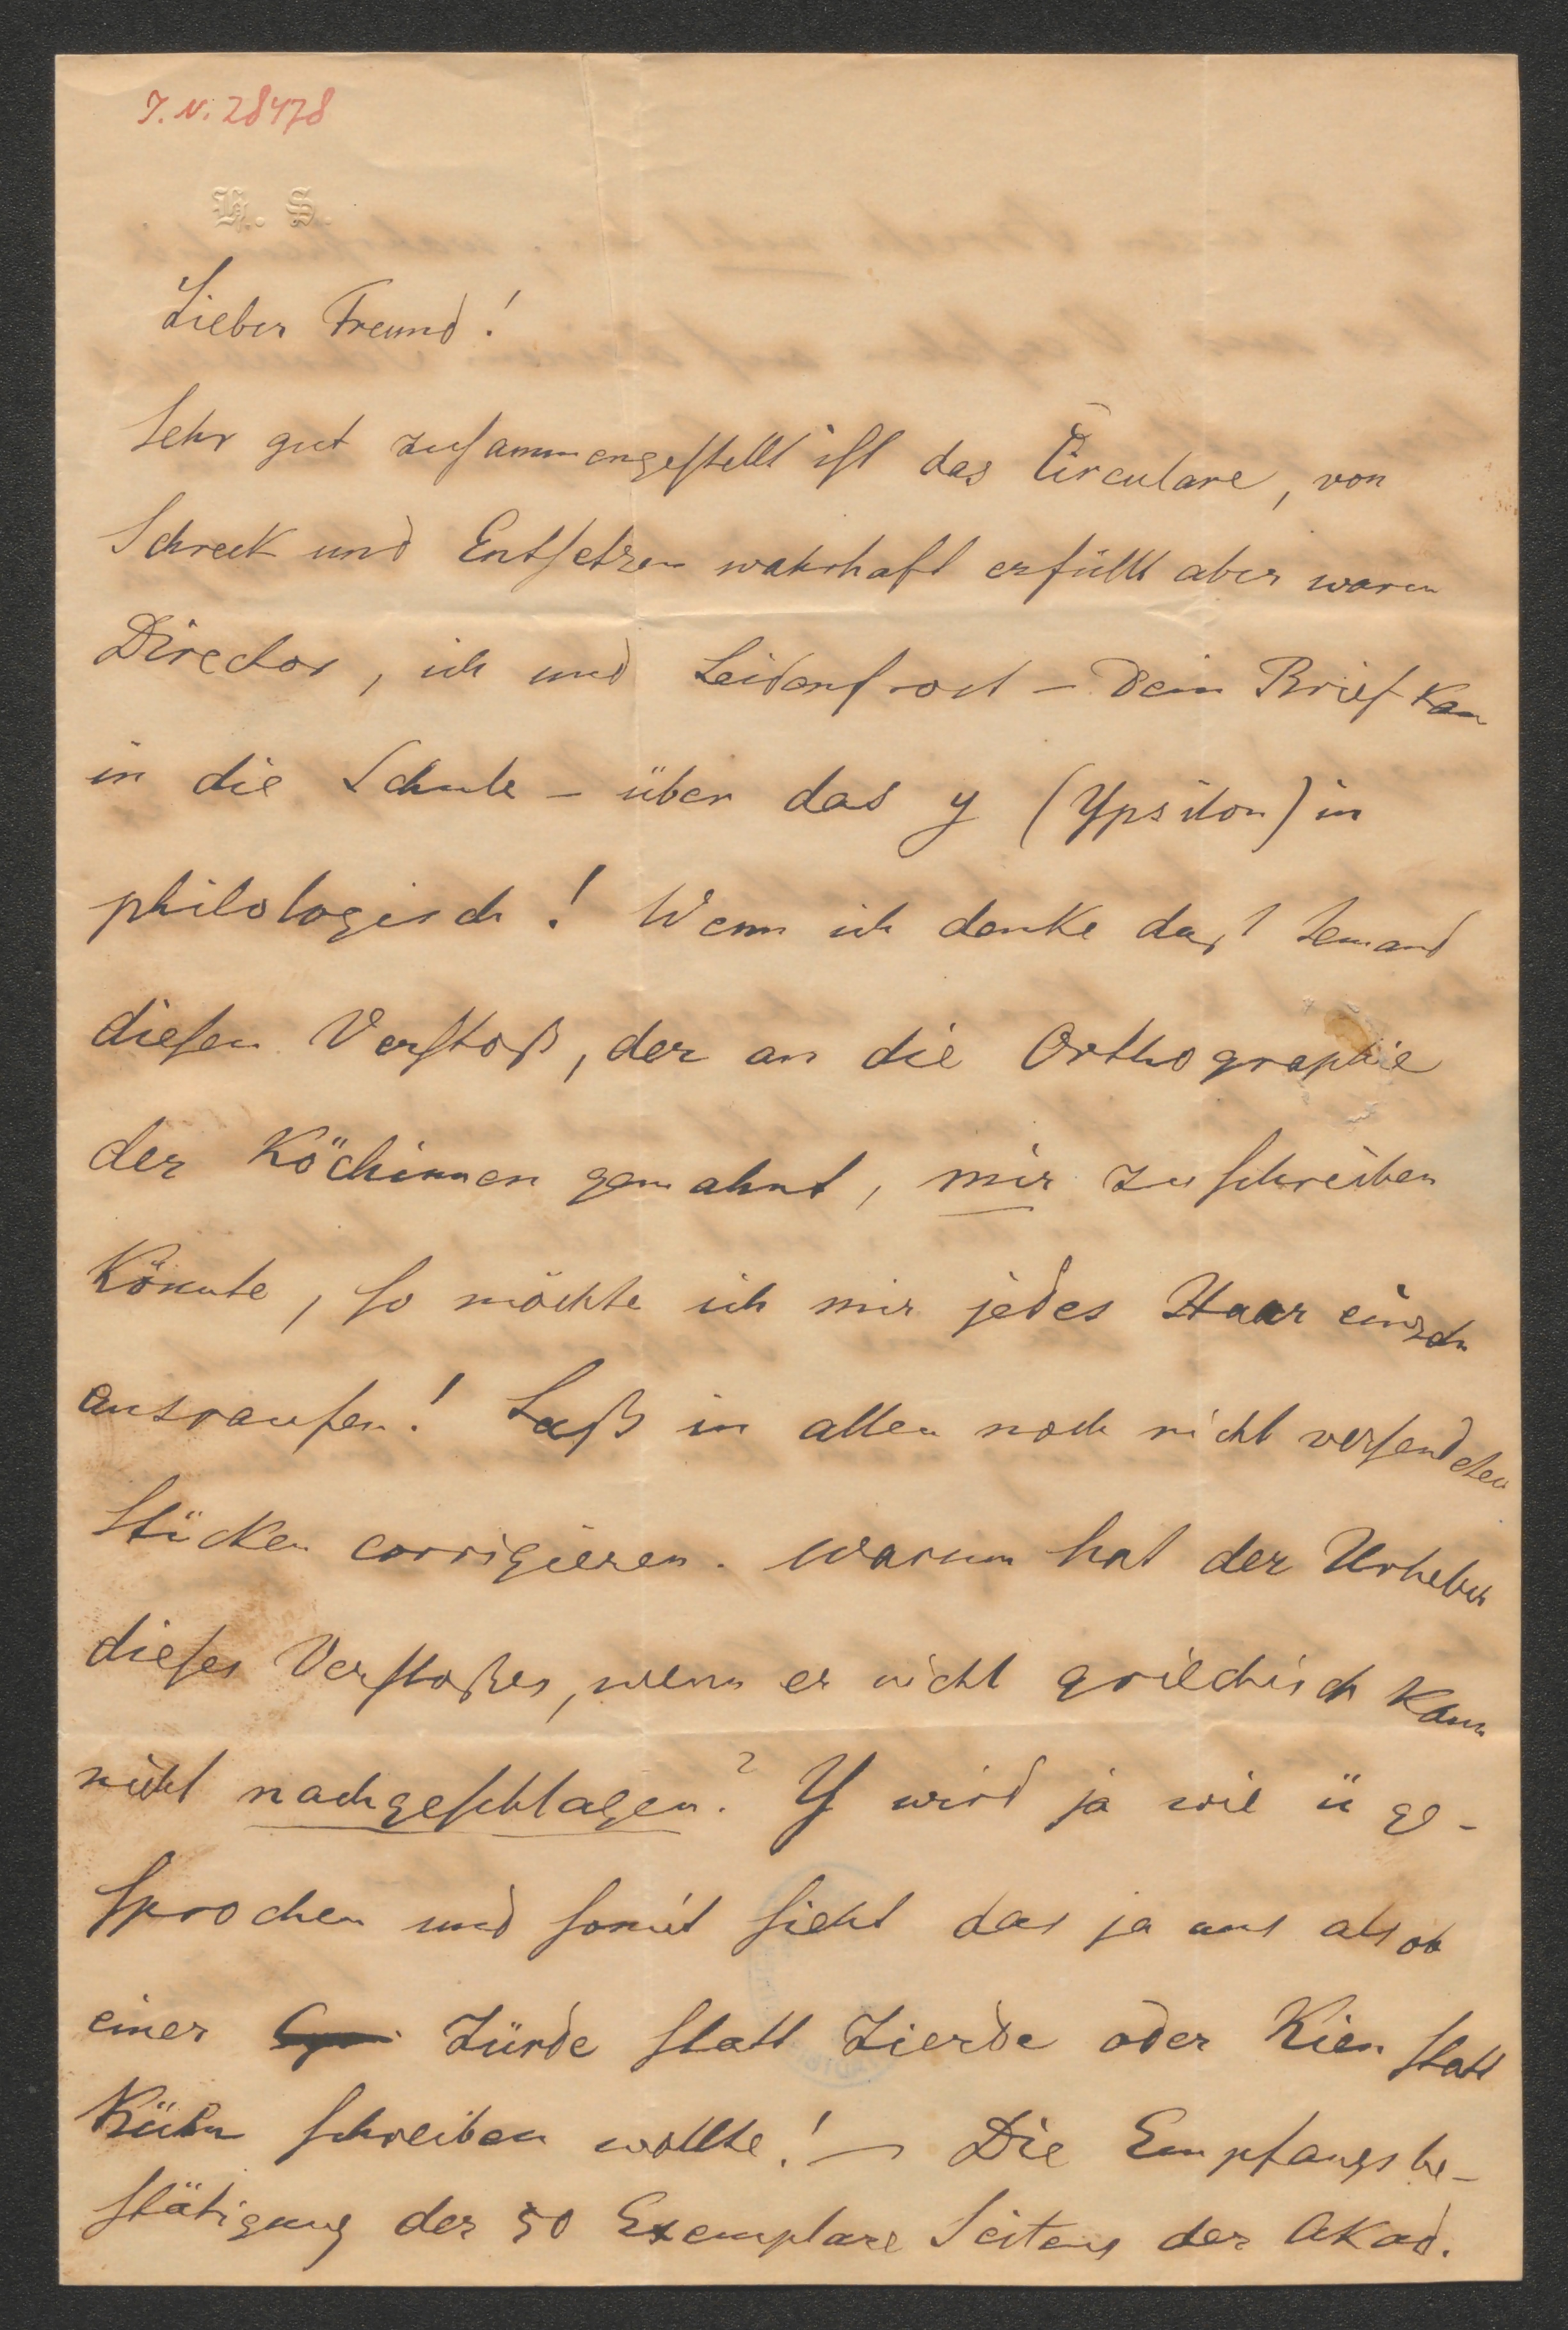 I. N. 28478
K. S.
Lieber Freund!
Sehr gut zusammengestellt ist das Circulare, von
Schreck und Entsetzen wahrhaft erfüllt aber waren
Director, ich und Leidenfrost – Dein Brief kam
in die Schule – über das y (Ypsilon) in
philologisch! Wenn ich denke daß Jemand
diesen Verstoß, der an die Orthographie
der Köchinnen gemahnt, mir zuschreiben
könnte, so möchte ich mir jedes Haar einzeln
ausraufen! Laß in allen noch nicht versendeten
Stücken corrigieren. Warum hat der Urheber
dieses Verstoßes, wenn er nicht griechisch kann
nicht nachgeschlagen? Y wird ja wie ü ge-
sprochen und somit sieht das ja aus als ob
einer Zürde statt Zierde oder Kien statt
Kühn schreiben wollte! – Die Empfangsbe-
stätigung der 50 Exemplare Seitens der Akad.